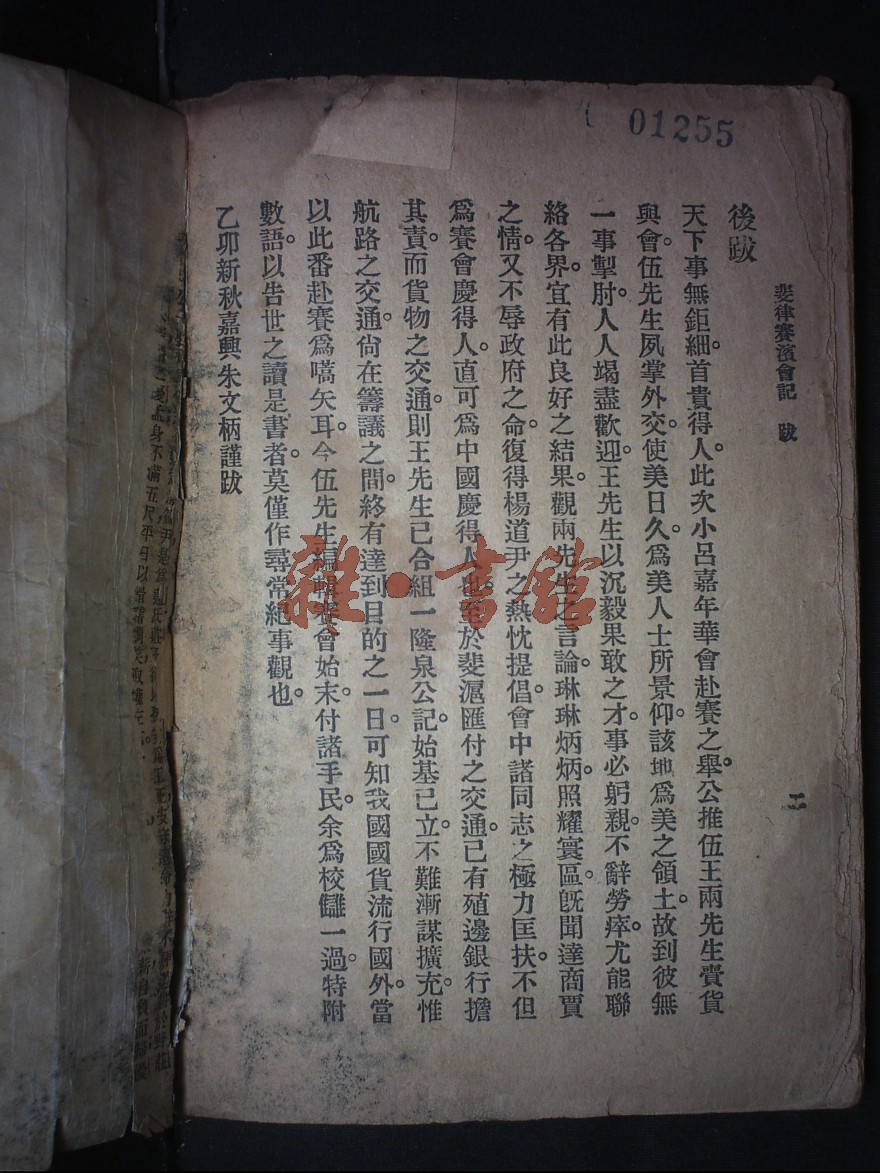 01255
斐律賽濱會記　跋
二
後跋
天下事無鉅細。首貴得人。此次小呂嘉年華會赴賽之舉。公推伍王兩先生賫貨
與會。伍先生夙掌外交。使美日久。爲美人士所景仰。該地爲美之領土。故到彼無
一事掣肘。人人竭盡歡迎。王先生以沉毅果敢之才。事必躬親。不辭勞瘁。尤能聯
絡各界。宜有此良好之結果。觀兩先生之言論。琳琳炳炳。照耀寰區。旣聞達商賈
之情。又不辱政府之命。復得楊道尹之熱忱提倡。會中諸同志之極力匡扶。不但
爲賽會慶得人。直可爲中國慶得人也。至於斐滬匯付之交通。已有殖邊銀行擔
其責。而貨物之交通。則王先生已合組一隆泉公記。始基已立。不難漸謀擴充。惟
航路之交通。尙在籌議之間。終有達到目的之一日。可知我國國貨流行國外。當
以此番赴賽爲嚆矢耳。今伍先生編輯賽會始末。付諸手民。余爲校讎一過。特附
數語。以告世之讀是書者。莫僅作尋常紀事觀也。
乙卯新秋嘉興朱文柄謹跋
身不滿五尺平日以
雜·書館